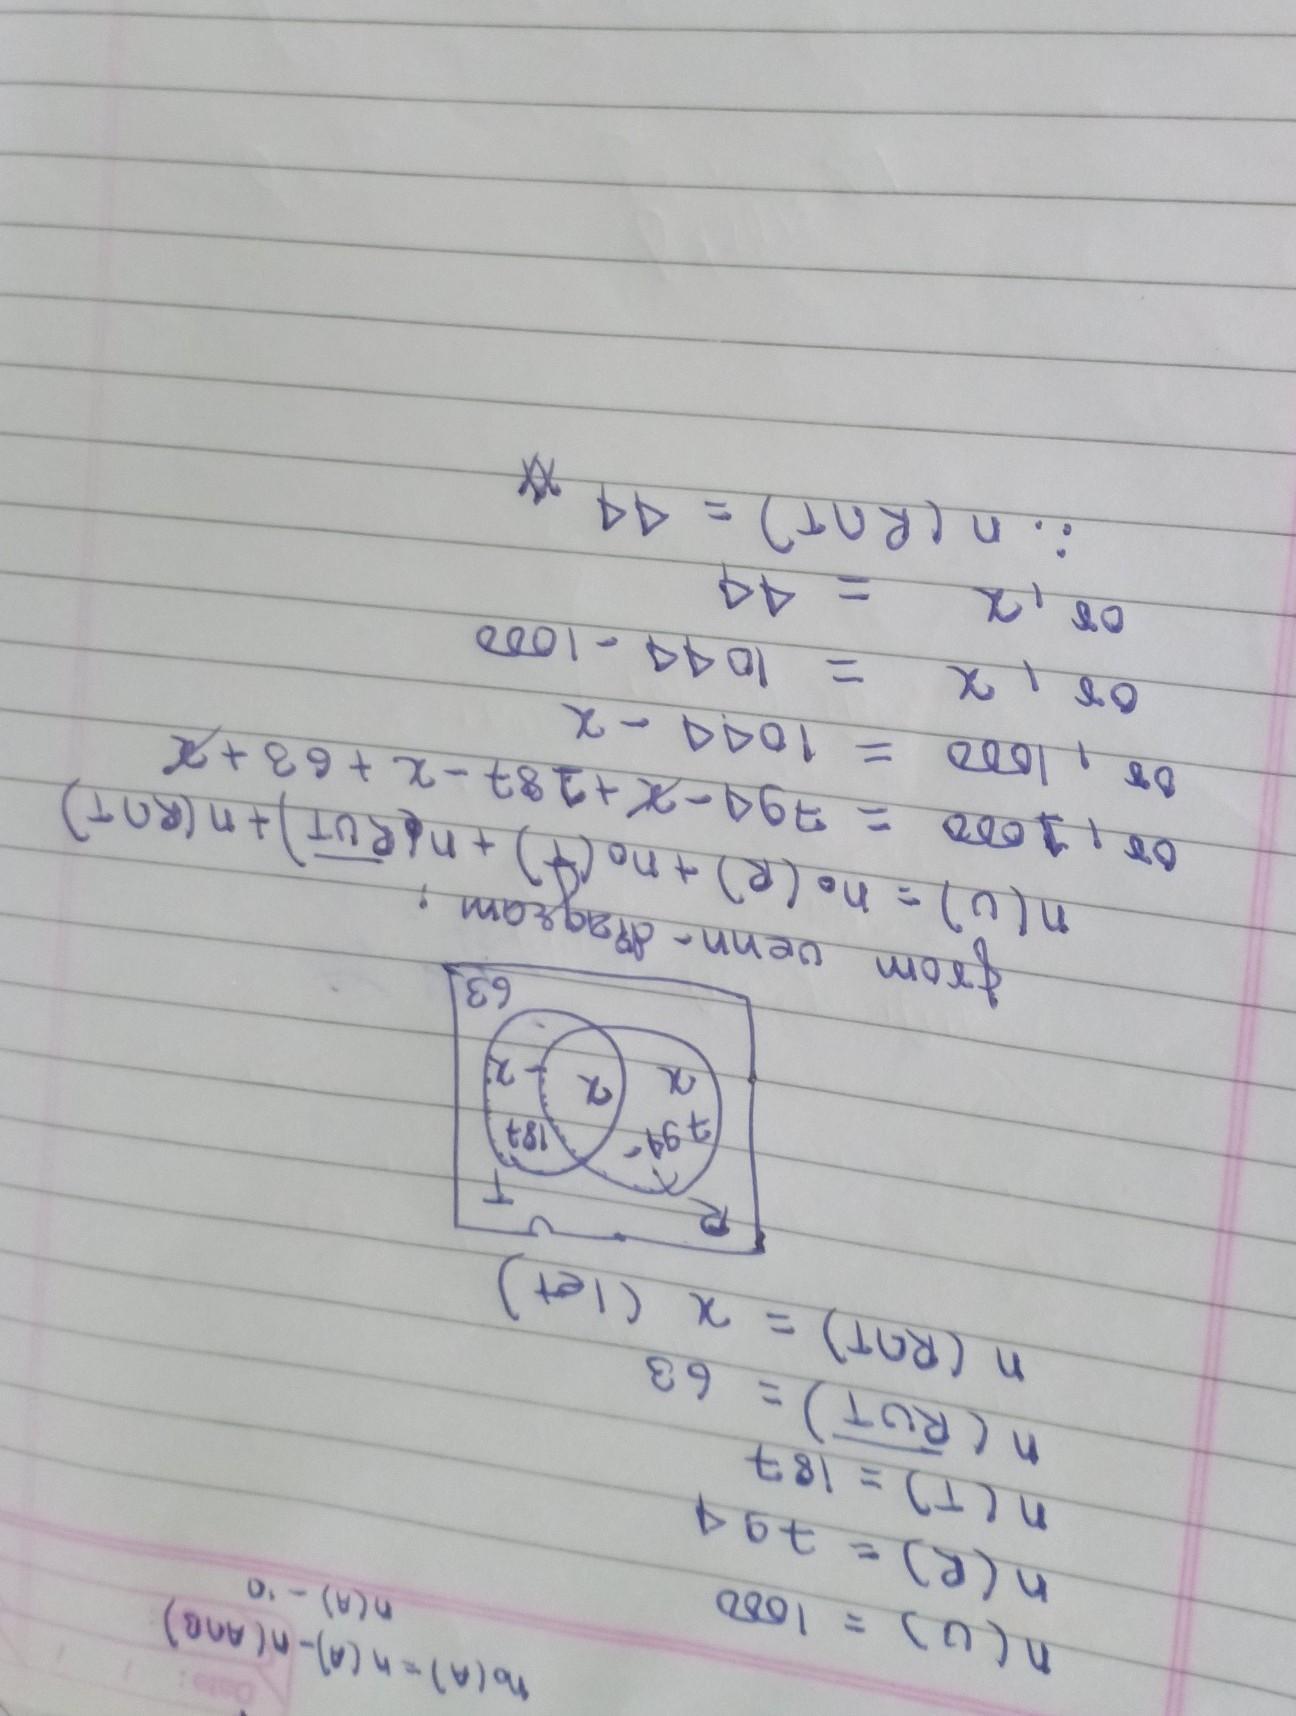 n₀(A) = n(A) - n(A∩B)
n(A) - 10
Date:
n(U) = 1000
n(R) = 794
n(T) = 187
n(R∪T)‾ = 63
n(R∩T) = x (let)
U
R T
794- 187
x x - x
63
from venn-diagram;
n(U) = n₀(R) + n₀(T) + n(R∪T)‾ + n(R∩T)
or, 1000 = 794 - x + 187 - x + 63 + x
or, 1000 = 1044 - x
or, x = 1044 - 1000
or, x = 44
∴ n(R∩T) = 44